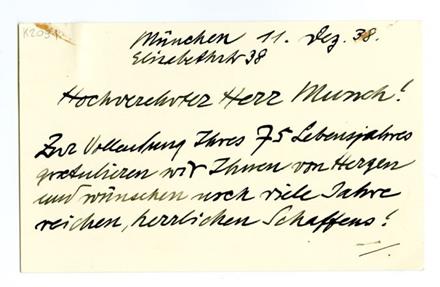 München 11. Dez. 38.
Elisabethstr 38
Hochverehrter Herr Munch!
Zur Vollendung Ihres 75 Lebensjahres
gratulieren wir Ihnen von Herzen
und wünschen noch viele Jahre
reichen, herrlichen Schaffens!